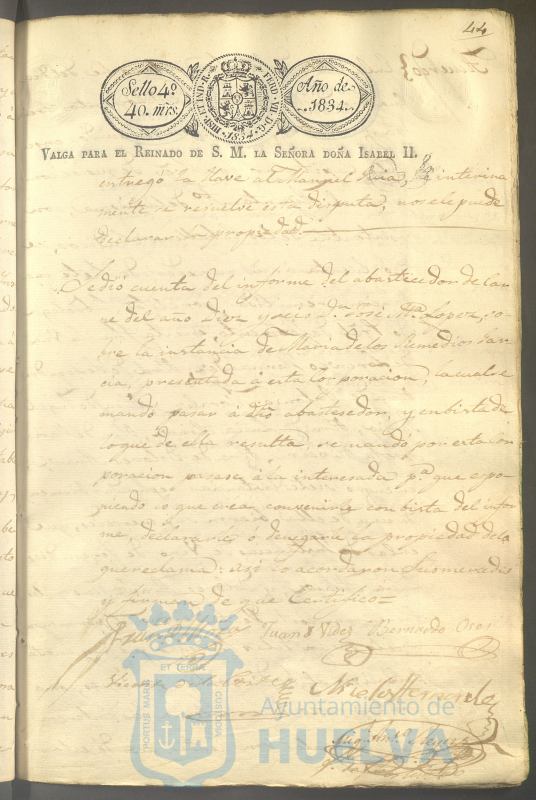 44
Sello 4º
40. mrs.
HISP. ET IND. R. FERD. VII. D. G. 1834
Año de
1834.
VALGA PARA EL REINADO DE S. M. LA SEÑORA DOÑA ISABEL II.
entregó la llave al Manuel interina
mente se resuelve esta disputa, no se le puede
declarar propiedad.
Se dió cuenta del informe del abastecedor de Car
ne del año Diez y ocho D. José Mª Lopez, so
bre la instancia de Maria de los Remedios Gar
cia, presentada á esta Corporacion, la cual se
mandó pasar á dho abastesedor, y en bista de
lo que de ella resulta, se mandó por esta Cor
poracion pasase á la interesada pª que espo
niendo lo que crea convenirle con bista del infor
me, declararle ó denegarle la propiedad de lo
que reclama: así lo acordaron Sus mercedes
y firman de que Certifico=
Juan Videz Bernardo Oros
Vicente
Nicolas Hernandez
PORTUS MARIS ET TERRÆ CUSTODIA
Ayuntamiento de
HUELVA